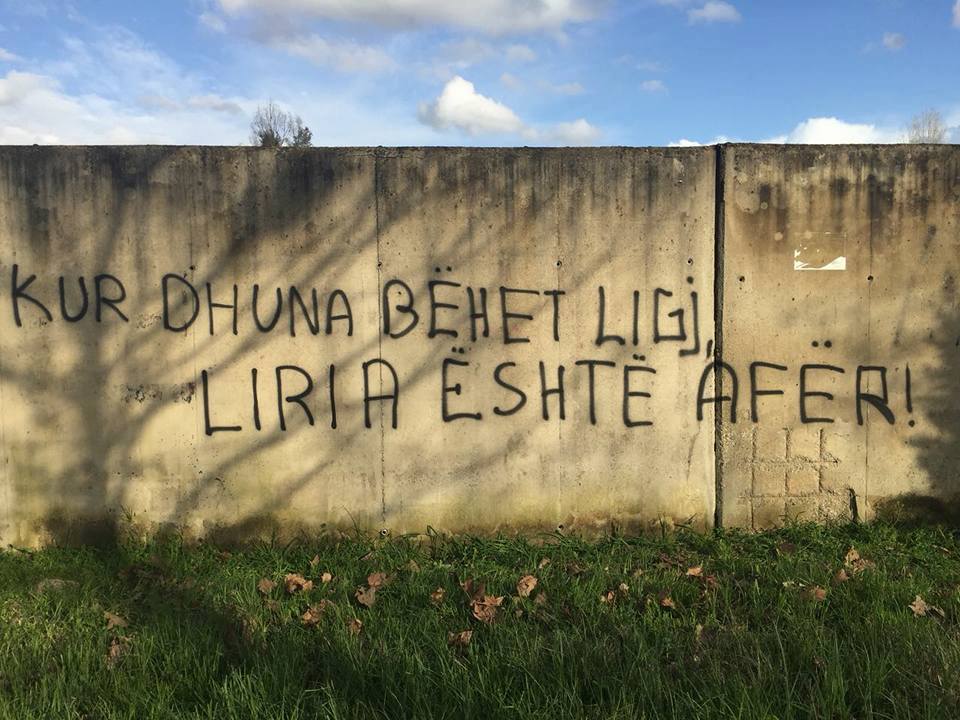 KUR DHUNA BËHET LIGj,
LIRIA ËSHTË AFËR!